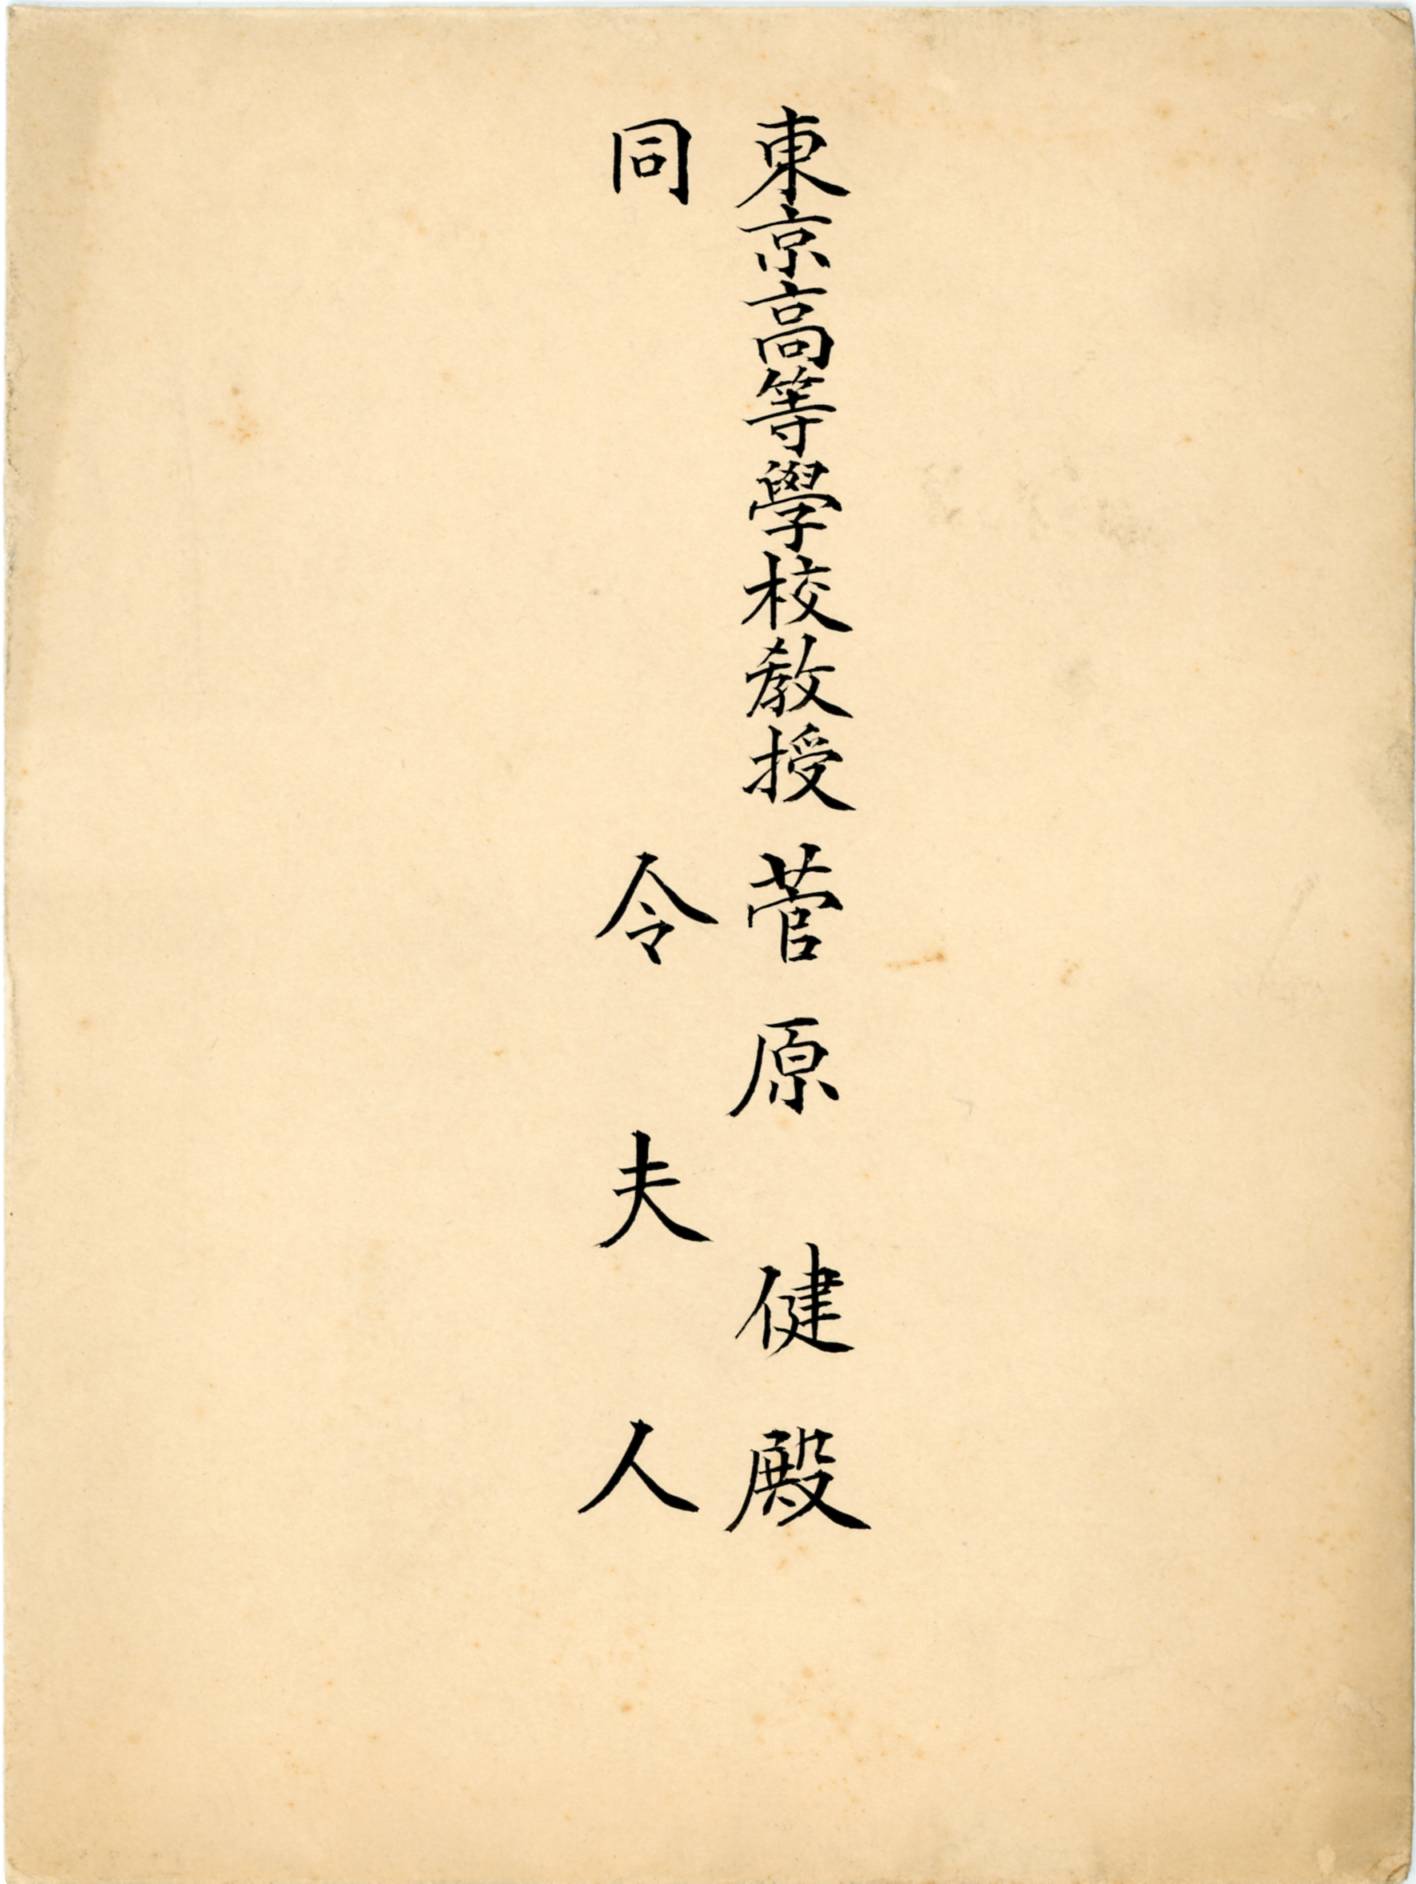 東京高等學校教授菅原健殿
同令夫人